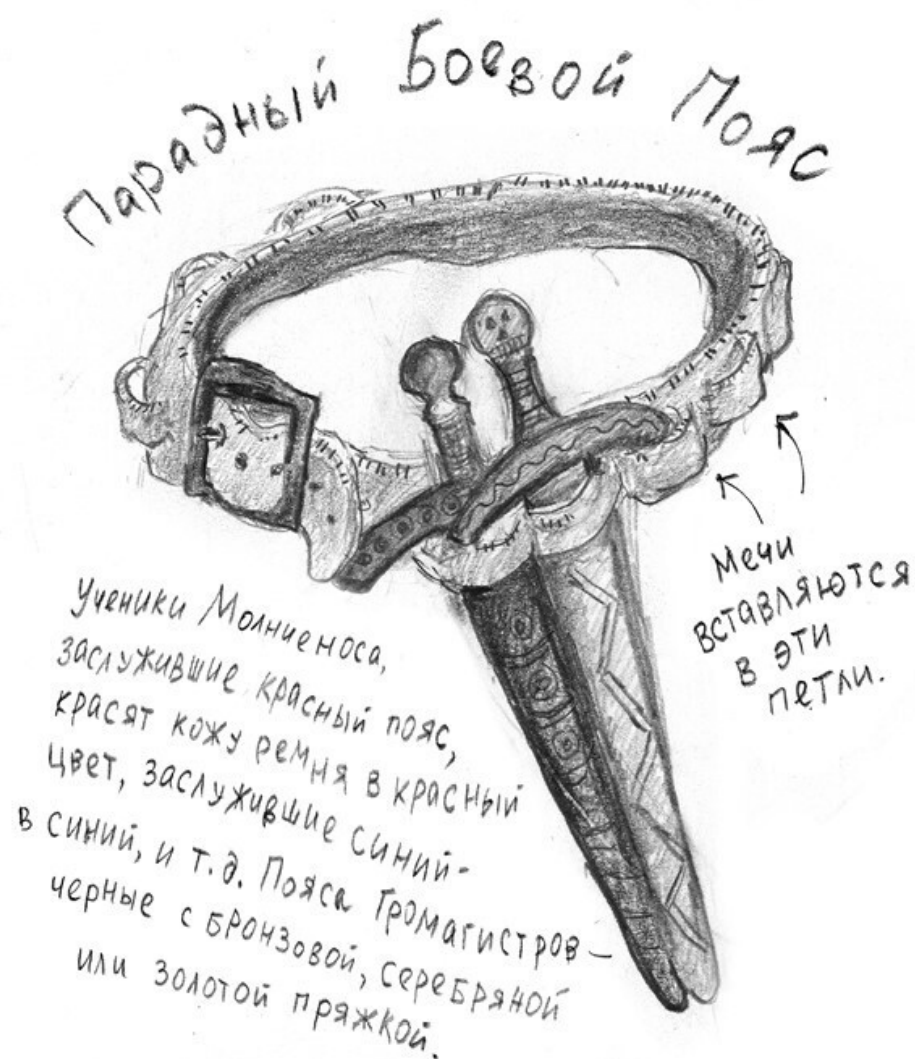 Парадный Боевой Пояс
Мечи
вставляются
в эти
петли.
Ученики Молниеноса,
заслужившие красный пояс,
красят кожу ремня в красный
цвет, заслужившие синий-
в синий, и т.д. Пояса Громагистров–
черные с бронзовой, серебряной
или золотой пряжкой.